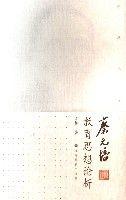 蔡元培
教育思想论析